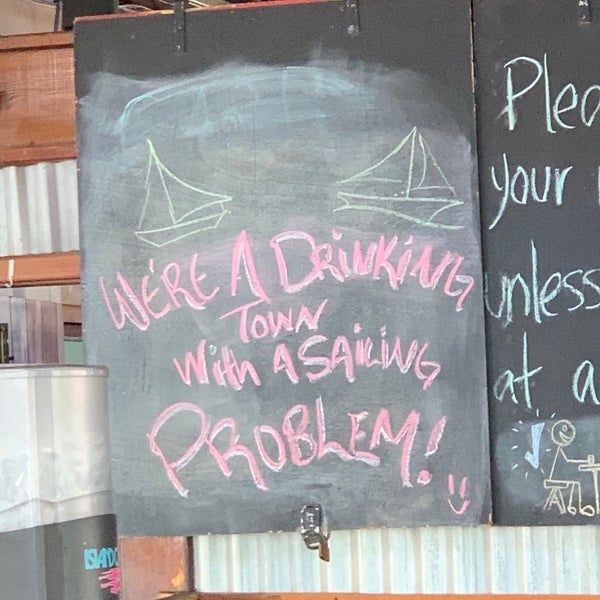 WE'RE A DRINKING
TOWN
With A SAILING
PROBLEM!
your
unless
at a